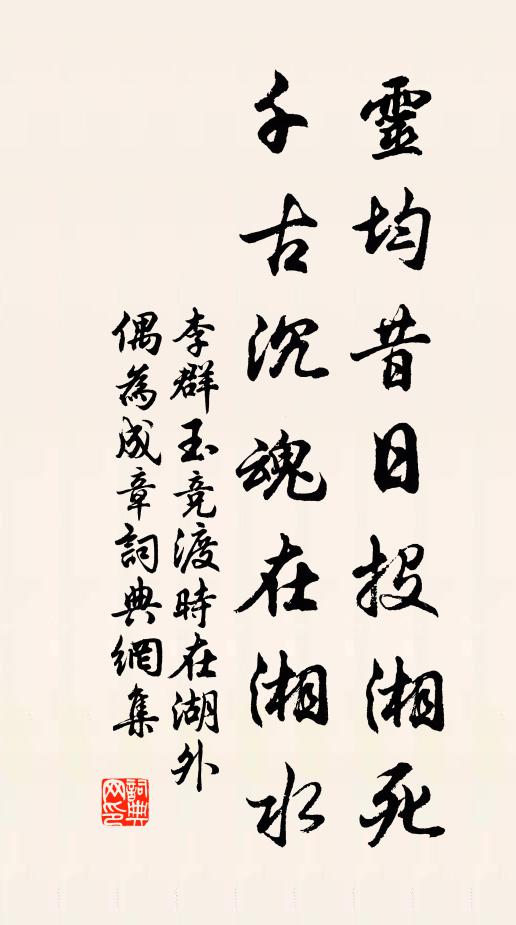 靈均昔日投湘死
千古沉魂在湘水
李群玉竞渡時在湖外
偶為成章詞典網集
詞典
网印